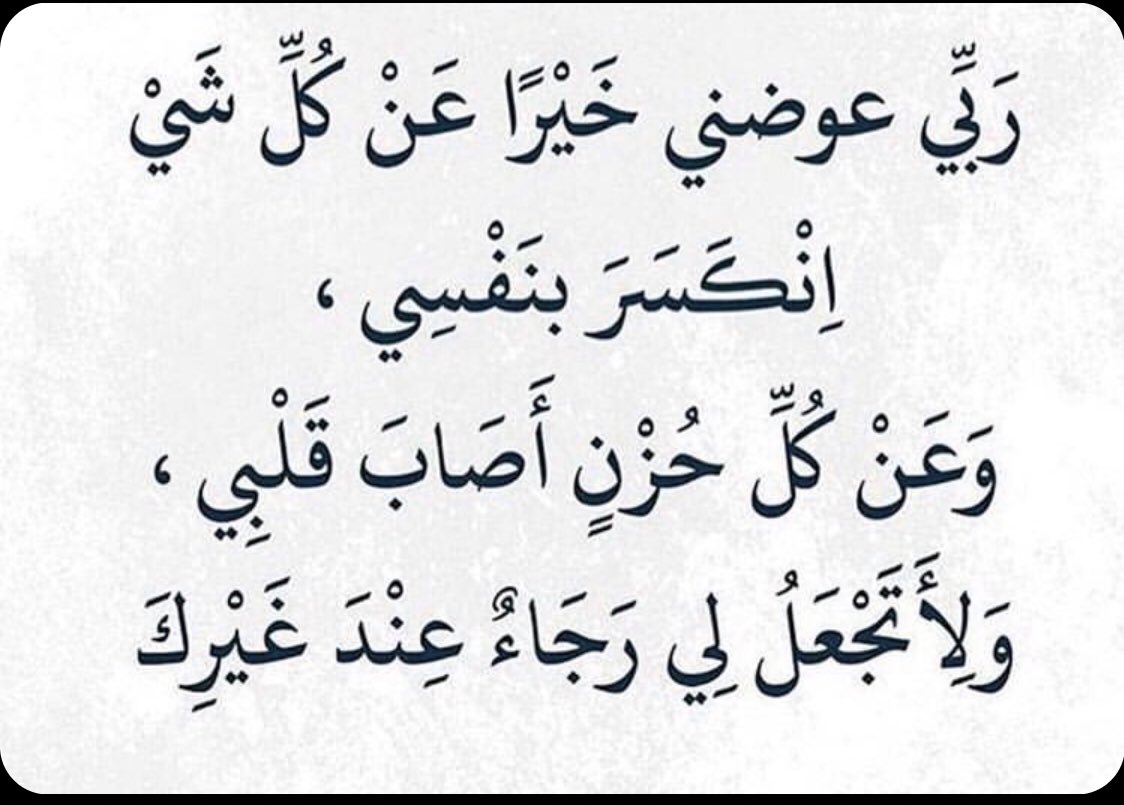 رَبِّي عوضني خَيْرًا عَنْ كُلِّ شَيْ
اِنْكَسَرَ بنَفْسِي ،
وَعَنْ كُلِّ حُزْنٍ أَصَابَ قَلْبِي ،
وَلِأَتَجْعَلُ لِي رَجَاءٌ عِنْدَ غَيْرِكَ